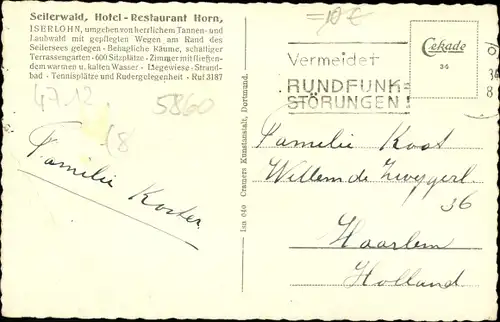 Seilerwald, Hotel-Restaurant Horn,
ISERLOHN, umgeben von herrlichem Tannen- und
Laubwald mit gepflegten Wegen am Rand des
Seilersees gelegen - Behagliche Räume, schattiger
Terrassengarten - 600 Sitzplätze - Zimmer mit fließen-
dem warmen u. kalten Wasser - Liegewiese - Strand-
bad - Tennisplätze und Rudergelegenheit - Ruf 3187
47.12.
5860
Familie Koster
Isn 040 Cramers Kunstanstalt, Dortmund.
=10 €
Vermeidet
RUNDFUNK-
STÖRUNGEN!
Cekade
36
Familie Koot
Willem de Zwygerl.
36
Haarlem
Holland